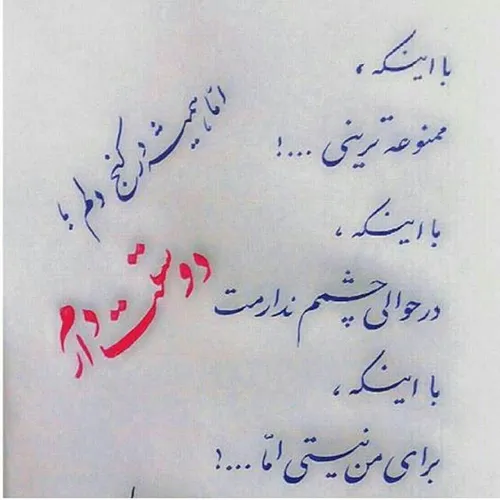 با اینکه ،
ممنوعه ترینی ...!
با اینکه ،
در حوالی چشمم ندارمت
با اینکه ،
برای من نیستی امّا ...!
امّا، همیشه در کنج دلم ها
دوستت دارم